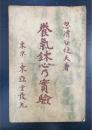 忽滑谷快天著
養氣錬心乃實驗
東京 東亞堂發兌